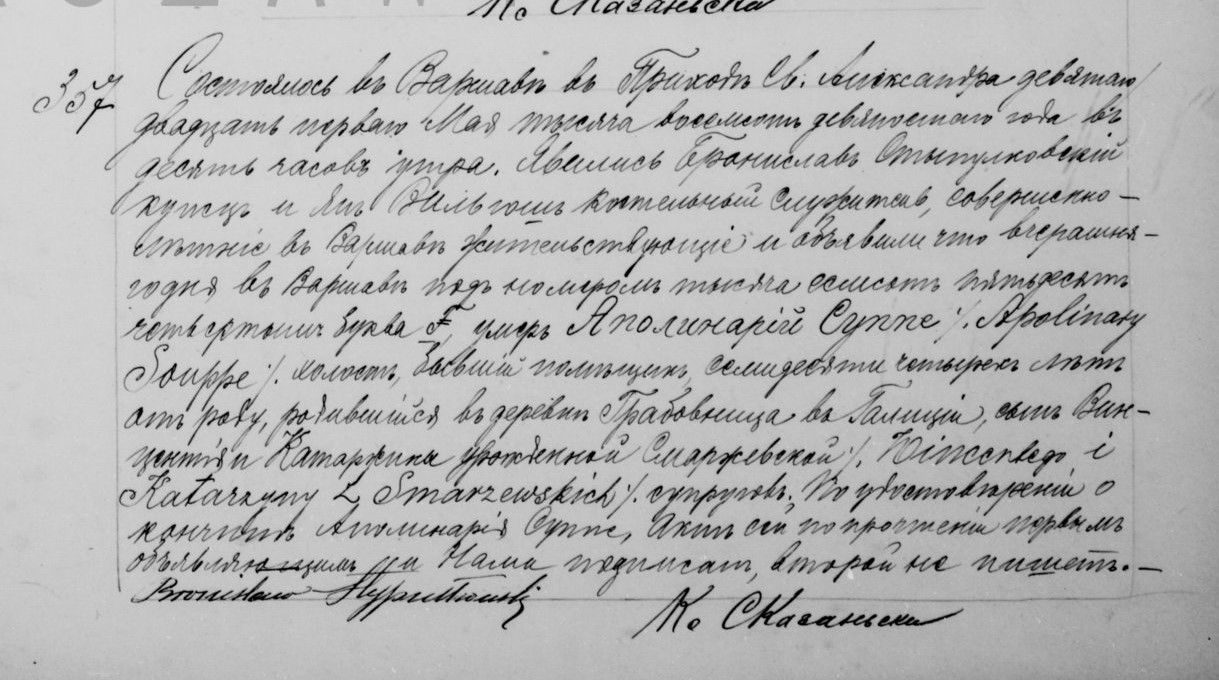 Кс Сказаньски
357 Состоялось въ Варшавѣ въ Приходѣ Св. Александра девятаго/
двадцать перваго Мая тысяча восемсотъ девяностаго года въ
десять часовъ утра. Явились Брониславъ Стыпулковскій
купецъ и Янъ Вильгош костельный служитель, совершенно-
лѣтніе въ Варшавѣ жительствующіе и объявили что вчерашня-
годня въ Варшавѣ подъ номеромъ тысяча семсотъ пятьдесятъ
четвертымъ буква F, умеръ Аполинарій Суппе /. Apolinary
Souppe /. холостъ, бывшій помѣщикъ, семидесяти четырехъ лѣтъ
отъ роду, родившійся въ деревнѣ Грабовница въ Галиціи, сынъ Вин-
центія и Катаржины урожденной Смаржевской /. Wincentego i
Katarzyny z Smarzewskich /. супруговъ. По удостовѣреніи о
кончинѣ Аполинарія Суппе, Актъ сей по прочтеніи первымъ
объявляющимъ и Нами подписанъ, второй не пишетъ. —
Bronisław Stypułkowski
Кс Сказаньски